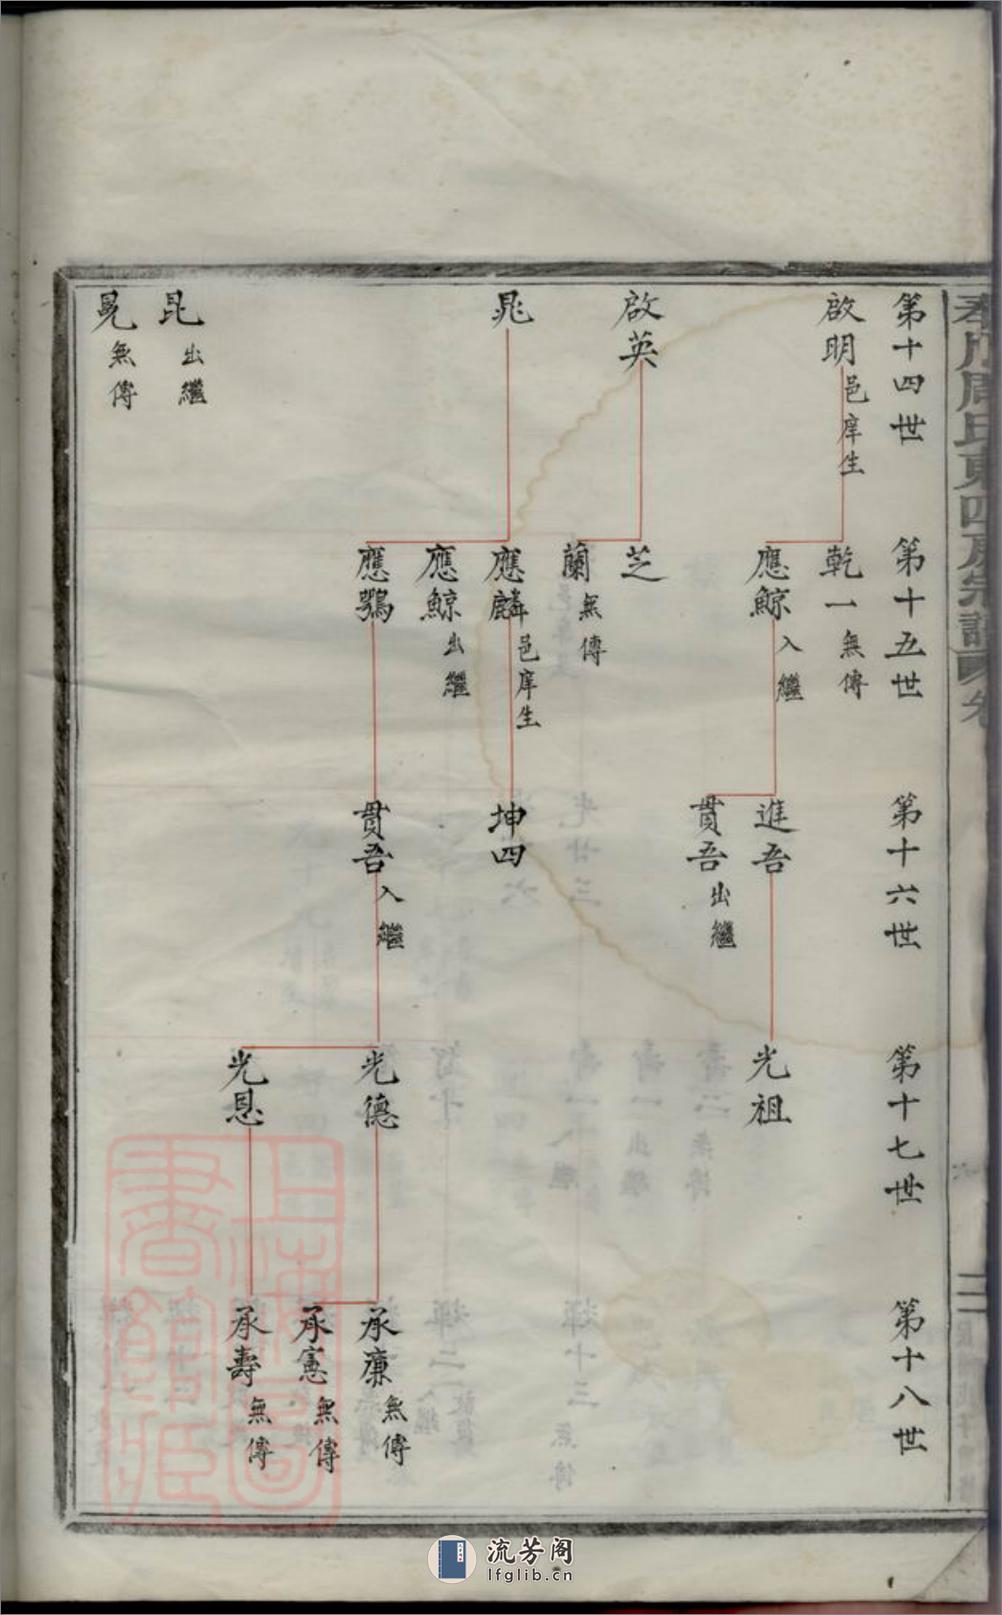 周氏東四房宗譜
卷
第十四世
啟明 邑庠生
啟英
晁
昆 出繼
晃 無傳
第十五世
乾一 無傳
應鯨 入繼
芝
蘭 無傳
應麟 邑庠生
應鯨 出繼
應鶚
第十六世
進吾
貫吾 出繼
坤四
貫吾 入繼
第十七世
光祖
光德
光恩
第十八世
承廉 無傳
承憲 無傳
承壽 無傳
上海圖書館藏
流芳阁
lfglib.cn